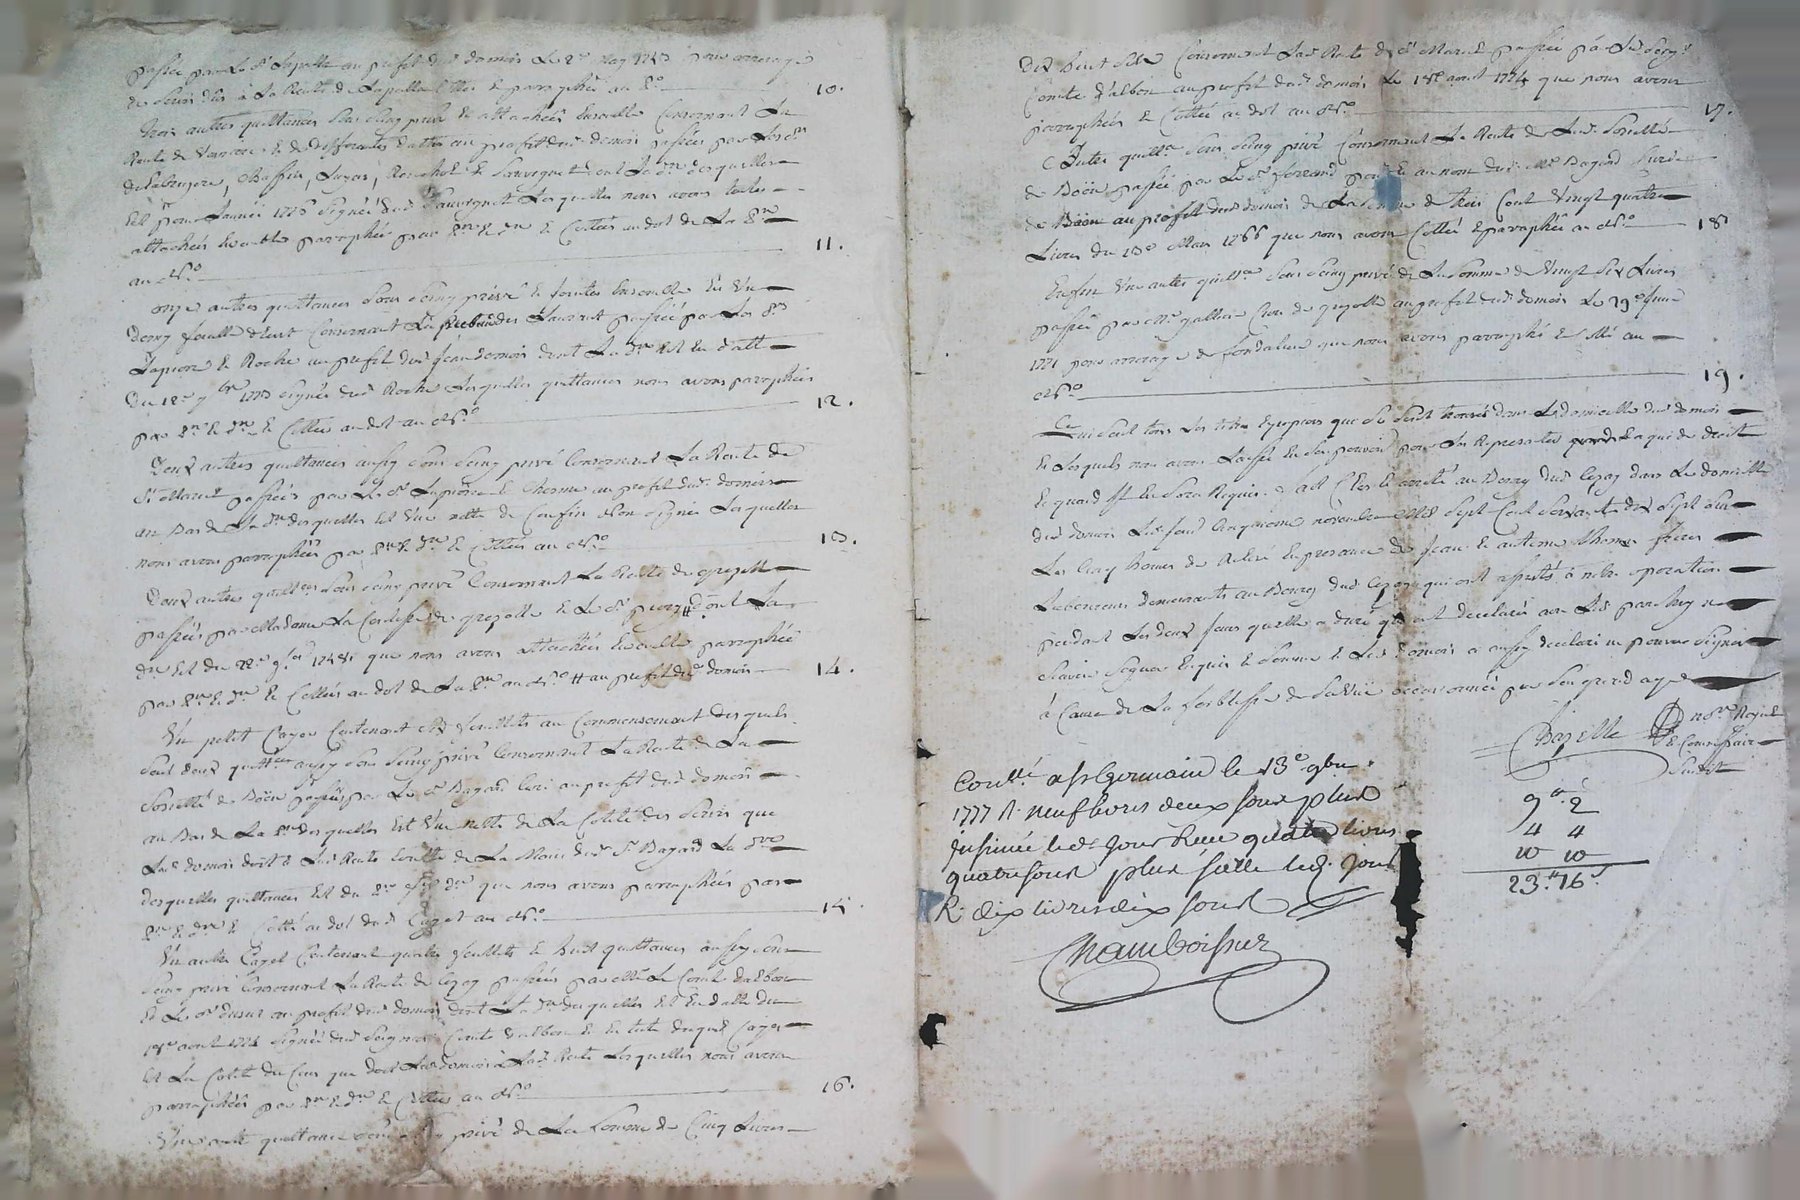 passée par le Sr Lapalle au profit dud. domois Le 2e may 1743 pour arrerage
de servis dûs à La Rente de Lapalle Cottée & paraphée au No 10.
Trois autres quittances sous seing privé & attachées Ensemble Concernant La
Rente de & de differentes dattes au profit dud. domois passées par Les Srs
de Labruyere, Massin, & Sauvignet dont La dre desquelles
Est pour L'année 1776 signée dud. Sauvignet Lesquelles nous avons toutes
attachées Ensemble paraphée par 1re & dre & Cottées au dol de La 1re
au No 11.
onze autres quittances sous seing privé & jointes Ensemble En Un
demy feuille Concernant La prebande Laurent passées par Les Srs
Lapierre & Roche au profit dud. Jean domois dont La dre Est En datte
Du 12e 9bre 1773 signée dud. Roche Lesquelles quittances nous avons paraphées
par 1re & dre & Cottées au dol au No 12.
Deux autres quittances aussy sous seing privé Concernant La Rente de
St Marcel passées par Le Sr Lapierre & Cherme au profit dud. domois
au Bas de La dre desquelles Est Une notte de signée Lesquelles
nous avons paraphées par 1re & dre & Cottées au No 13.
Deux autres quittances sous seing privé Concernant La Rente de grezolle
passées par Madame La Comtesse de grezolle & Le Sr # dont La
dre Est du 22e 9bre 1748 que nous avons attachées Ensemble, paraphée
par 1re & dre & Cottées au dol de La 1re au No # au profit dud. domois 14.
Un petit Cayer Contenant six feuillets au Commencement desquels
sont deux quittces aussy sous seing privé Concernant La Rente de La
Societté de Boën passées par Le Sr Bayard Curé au profit dud. domois
au Bas de La 1re desquelles Est Une notte de La Cotte des servis que
Led. domois doit à Lad. Rente Ecritte de La Main dud. Sr Bayard La dre
desquelles quittances Est du que nous avons paraphées par
1re & dre & Cotté au dol dud. Cayer au No 15.
Un autre Cayer Contenant quatre feuillets & huit quittances aussy sous
seing privé Concernant La Rente de Cezay passées par Mr Le Comte dalbon
& Le Sr dusur au profit dud. domois dont La dre desquelles Est En datte du
18e aout 1774 signée dud. Seigneur Comte dalbon & En tete duquel Cayer
Est La Cotte du Cens que doit Led. domois à Lad. Rente Lesquelles nous avons
paraphées par 1re & dre & Cottées au No 16.
Une autre quittance sous seing privé de La somme de Cinq Livres
Dix huit sols Concernant Lad. Rente de St Marcel passée par Led. Seigr
Comte d'albon au profit dud. domois Le 18e aout 1774 que nous avons
paraphées & Cottée au dol au No 17.
Autre quittce sous seing privé Concernant La Rente de Lad. Societté
de Boën passée par Le Sr ferrand pour & au nom dud. Mr Bayard Curé
de Boën au profit dud. domois de La somme de Trois Cent Vingt quatre
Livres du 13e Mars 1766 que nous avons Cottée & paraphée au No 18.
Enfin Une autre quittce sous seing privé de La somme de Vingt Six Livres
passée par Mr gallois Curé de grezolle au profit dud. domois Le 19e Juin
1771 pour arrerage de fondation que nous avons paraphé & Cotté au
No 19.
Qui sont tous Les titres & papiers que se sont trouvés dans Le domicille dud. domois
& Lesquels nous avons Laissé En son pouvoir pour Les Representer a qui de droit
& quand Il En sera Requis. fait Clos & arrêté au Bourg dud. Cezay dans Le domicille
dud. domois Led. jour Cinquieme novembre Mil Sept Cent Soixante dix Sept sur
Les Cinq heures de Relevé En presence de Jean & antoine Thomas freres
Laboureurs demeurants au Bourg dud. Cezay qui ont assistés à notre operation
pendant Les deux jours quelle a duré qui ont declarés avec Led. par Luy ne
Scavoir Signer Enquis & Somme & Led. domois a aussy declaré ne pouvoir Signer
à Cause de La foiblesse de Sa Vuë occasionnée par Son grand age
Chazelle nore Royal
& Commissaire
Susdit
Conllé a St Germain le 13e 9bre
1777 R. neuf livres deux sous plus
insinué led. jour Reçu quatre livres
quatre sous plus sçellé led. jour
R. dix livres dix sous
Chamboissier
9lt 2s
4 4
10 10
23.lt 16s